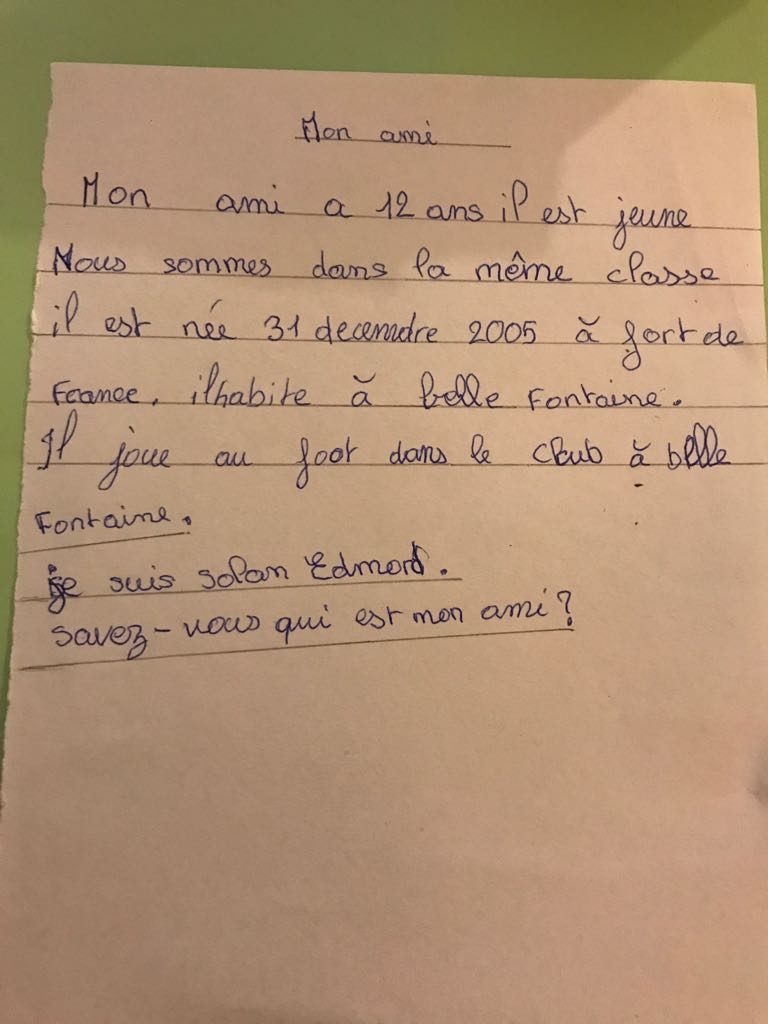 Mon ami
Mon ami a 12 ans il est jeune
Nous sommes dans la même classe
il est née 31 decemdre 2005 à fort de
France. il habite à belle Fontaine.
Il joue au foot dans le club à belle
Fontaine.
je suis solan Edmond.
savez-vous qui est mon ami?